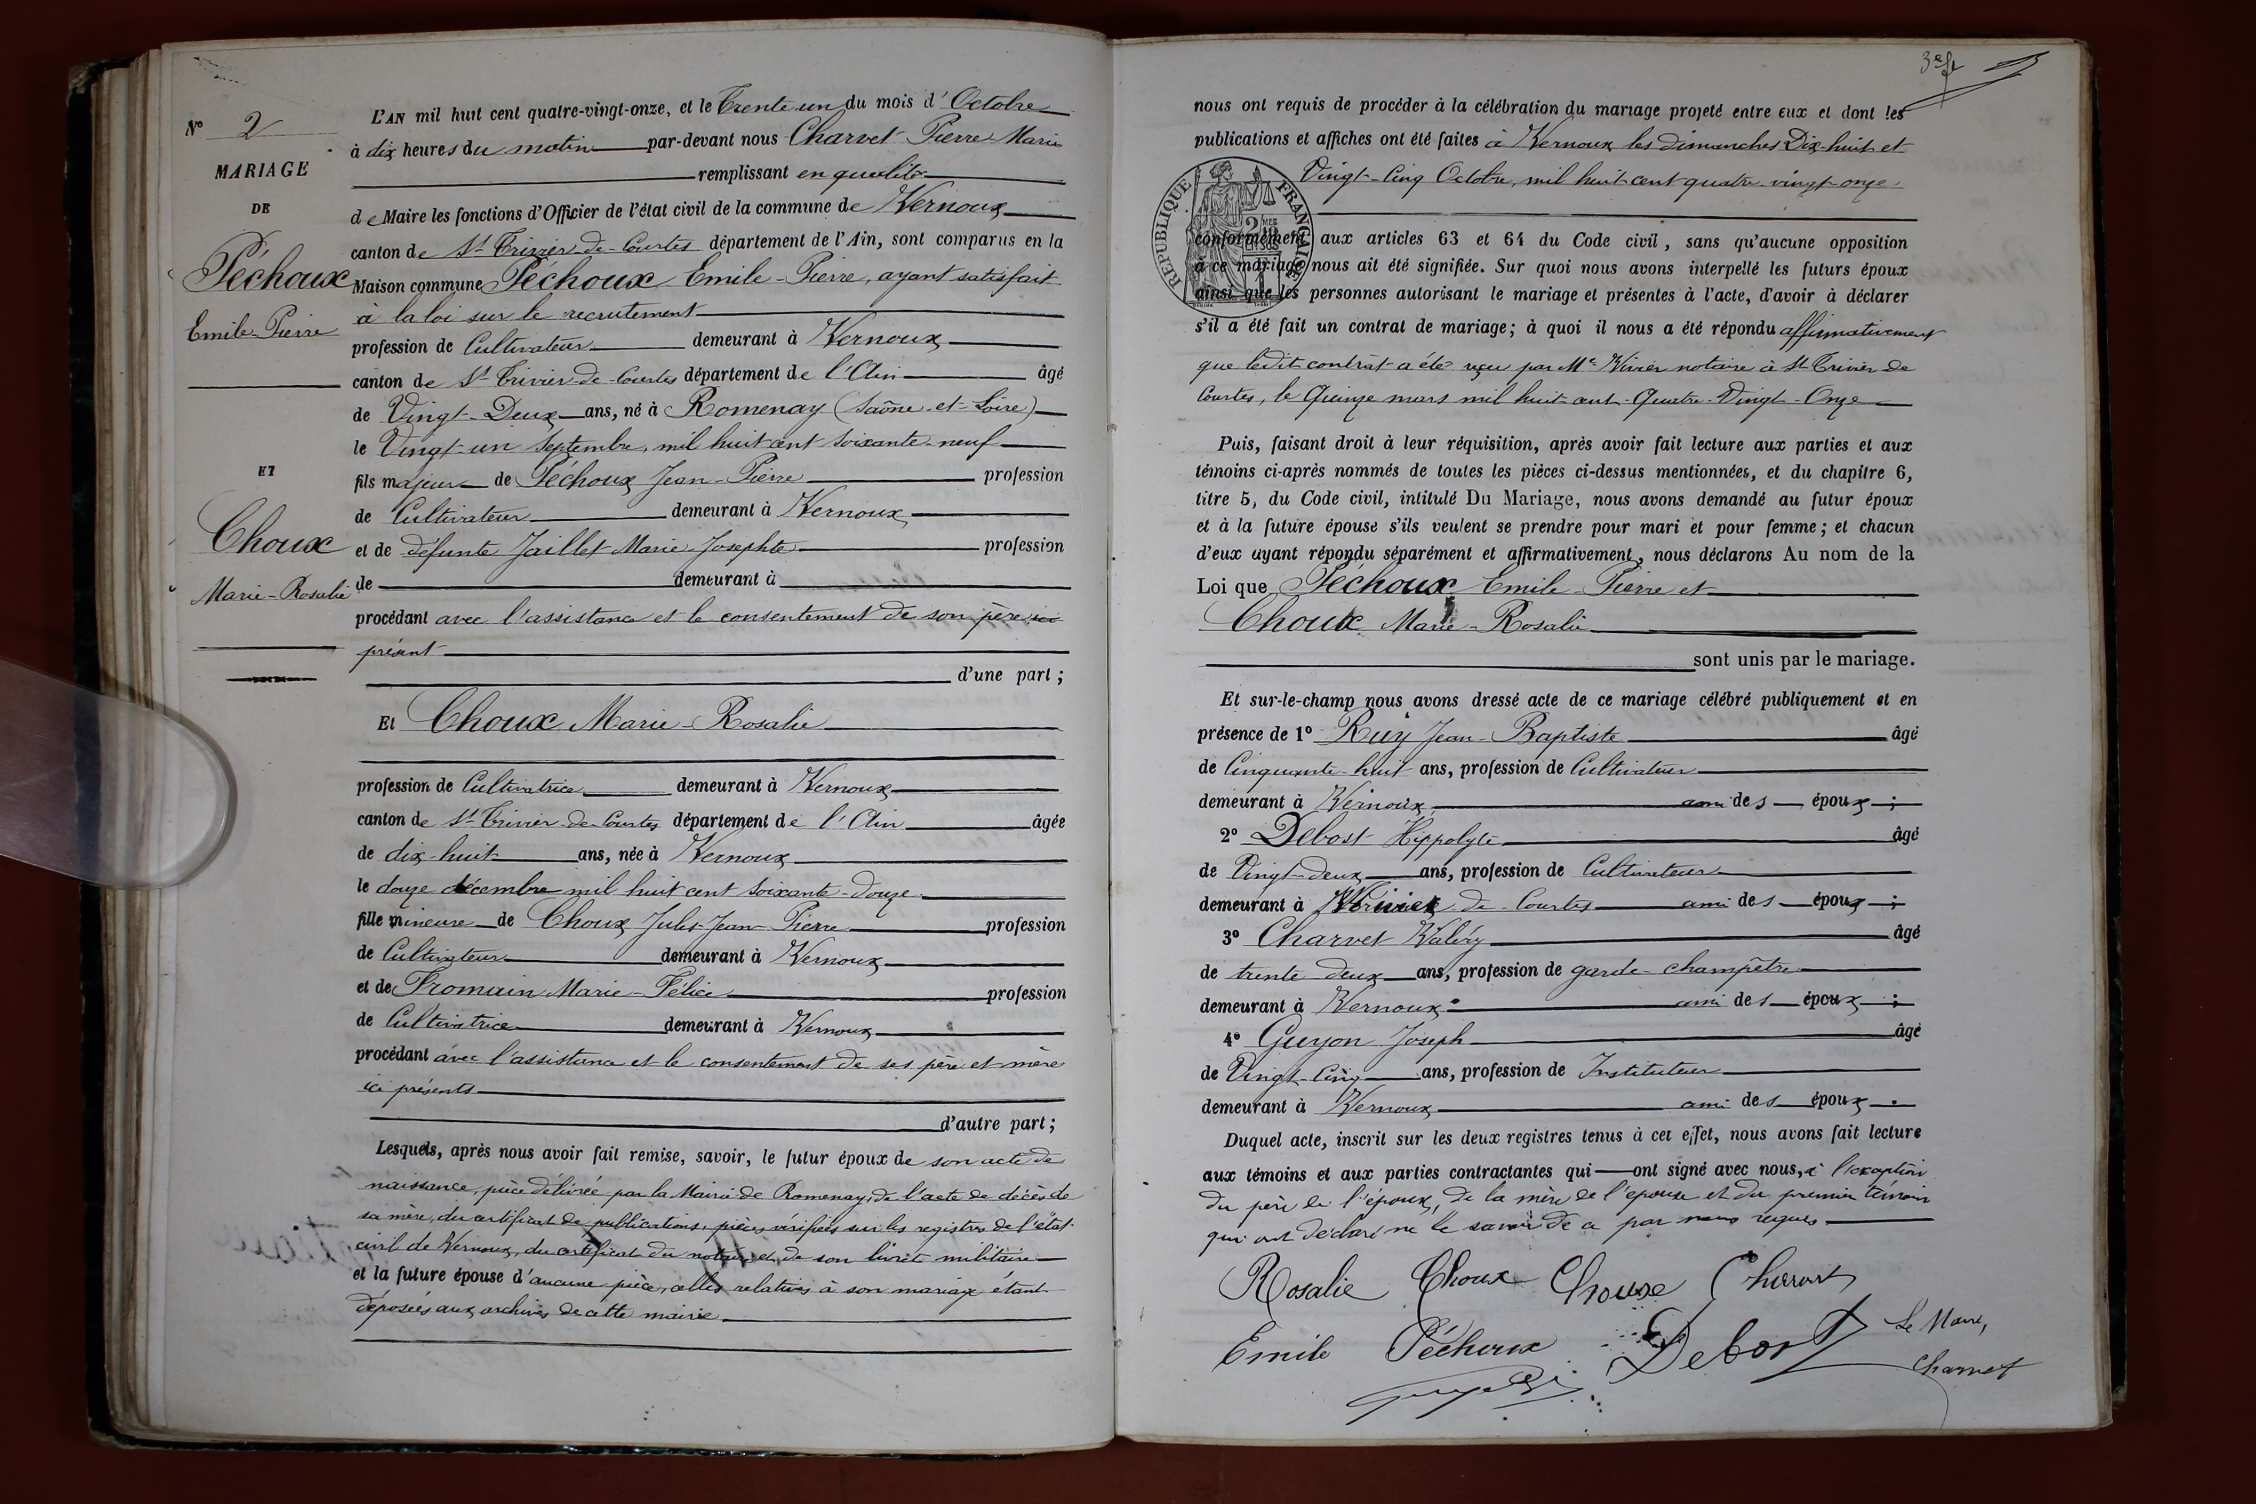 N° 2
MARIAGE
DE
Péchoux
Emile-Pierre
ET
Choux
Marie-Rosalie
L'AN mil huit cent quatre-vingt-onze, et le Trente un du mois d'Octobre
à dix heures du matin par-devant nous Charvet Pierre-Marie
remplissant en qualité
de Maire les fonctions d'Officier de l'état civil de la commune de Vernoux
canton de St Trivier-de-Courtes département de l'Ain, sont comparus en la
Maison commune Péchoux Emile-Pierre, ayant satisfait
à la loi sur le recrutement
profession de Cultivateur demeurant à Vernoux
canton de St Trivier-de-Courtes département de l'Ain âgé
de Vingt-Deux ans, né à Romenay (Saône-et-Loire)
le Vingt-un Septembre, mil huit cent soixante-neuf
fils majeur de Péchoux Jean-Pierre profession
de Cultivateur demeurant à Vernoux
et de défunte Jaillet Marie-Josephte profession
de demeurant à
procédant avec l'assistance et le consentement de son père ici
présent
d'une part ;
Et Choux Marie-Rosalie
profession de Cultivatrice demeurant à Vernoux
canton de St Trivier-de-Courtes département de l'Ain âgée
de dix-huit ans, née à Vernoux
le douze décembre mil huit cent soixante-douze
fille mineure de Choux Jules-Jean-Pierre profession
de Cultivateur demeurant à Vernoux
et de Fromain Marie-Félice profession
de Cultivatrice demeurant à Vernoux
procédant avec l'assistance et le consentement de ses père et mère
ici présents
d'autre part ;
Lesquels, après nous avoir fait remise, savoir, le futur époux de son acte de
naissance, pièce délivrée par la Mairie de Romenay, de l'acte de décès de
sa mère, du certificat de publications, pièces vérifiées sur les registres de l'état
civil de Vernoux, du certificat du notaire et de son livret militaire
et la future épouse d'aucune pièce, celles relatives à son mariage étant
déposées aux archives de cette mairie
3e ft
nous ont requis de procéder à la célébration du mariage projeté entre eux et dont les
publications et affiches ont été faites à Vernoux les dimanches Dix-huit et
Vingt-Cinq Octobre, mil huit cent quatre-vingt-onze,
RÉPUBLIQUE FRANÇAISE
conformément aux articles 63 et 64 du Code civil, sans qu'aucune opposition
à ce mariage nous ait été signifiée. Sur quoi nous avons interpellé les futurs époux
ainsi que les personnes autorisant le mariage et présentes à l'acte, d'avoir à déclarer
s'il a été fait un contrat de mariage; à quoi il nous a été répondu affirmativement
que ledit contrat a été reçu par Me Vivier notaire à St Trivier de
Courtes, le Quinze mars mil huit cent-Quatre-Vingt-Onze
Puis, faisant droit à leur réquisition, après avoir fait lecture aux parties et aux
témoins ci-après nommés de toutes les pièces ci-dessus mentionnées, et du chapitre 6,
titre 5, du Code civil, intitulé Du Mariage, nous avons demandé au futur époux
et à la future épouse s'ils veulent se prendre pour mari et pour femme ; et chacun
d'eux ayant répondu séparément et affirmativement, nous déclarons Au nom de la
Loi que Péchoux Emile-Pierre et
Choux Marie-Rosalie
sont unis par le mariage.
Et sur-le-champ nous avons dressé acte de ce mariage célébré publiquement et en
présence de 1° Ruy Jean-Baptiste âgé
de Cinquante-huit ans, profession de Cultivateur
demeurant à Vernoux ami des époux ;
2° Debost Hippolyte âgé
de Vingt-deux ans, profession de Cultivateur
demeurant à de-Courtes ami des époux ;
3° Charvet Valéry âgé
de trente deux ans, profession de garde-champêtre
demeurant à Vernoux ami des époux ;
4° Guyon Joseph âgé
de Vingt-Cinq ans, profession de Instituteur
demeurant à Vernoux ami des époux.
Duquel acte, inscrit sur les deux registres tenus à cet effet, nous avons fait lecture
aux témoins et aux parties contractantes qui ont signé avec nous, à l'exception
du père de l'époux, de la mère de l'épouse et du premier témoin
qui ont déclaré ne le savoir de ce par nous requis
Rosalie Choux Choux Charvet
Emile Péchoux Debost Le Maire,
Charvet